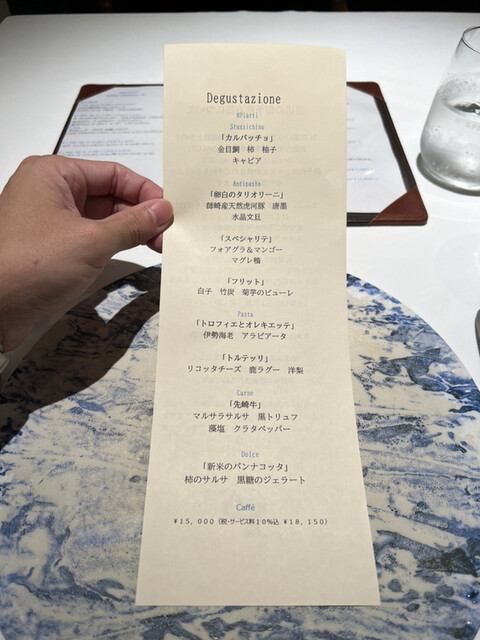 Degustazione
8Piatti
Stuzzichino
「カルパッチョ」
金目鯛　柿　柚子
キャビア
Antipasto
「卵白のタリオリーニ」
師崎産天然虎河豚　唐墨
水晶文旦
「スペシャリテ」
フォアグラ＆マンゴー
マグレ鴨
「フリット」
白子　竹炭　菊芋のピューレ
Pasta
「トロフィエとオレキエッテ」
伊勢海老　アラビアータ
「トルテッリ」
リコッタチーズ　鹿ラグー　洋梨
Carne
「先崎牛」
マルサラサルサ　黒トリュフ
藻塩　クラタペッパー
Dolce
「新米のパンナコッタ」
柿のサルサ　黒糖のジェラート
Caffé
￥15,000（税・サービス料10％込 ￥18,150）